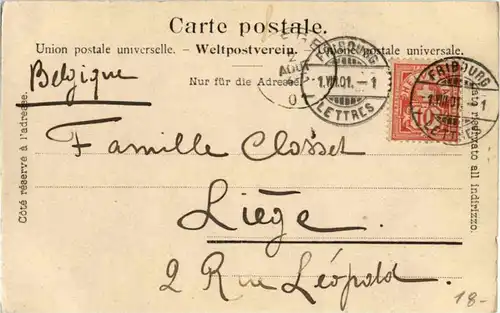 Carte postale.
Union postale universelle. - Weltpostverein. - Unione postale universale.
Nur für die Adresse
Côté réservé à l'adresse.
Lato riservato all indirizzo.
Belgique
Famille Closset
Liège
2 Rue Léopold.
FRIBOURG
1.VIII.01.-1
LETTRES
FRIBOURG
1.VIII.01.-1
LETTRES
10
AOUT
18.-